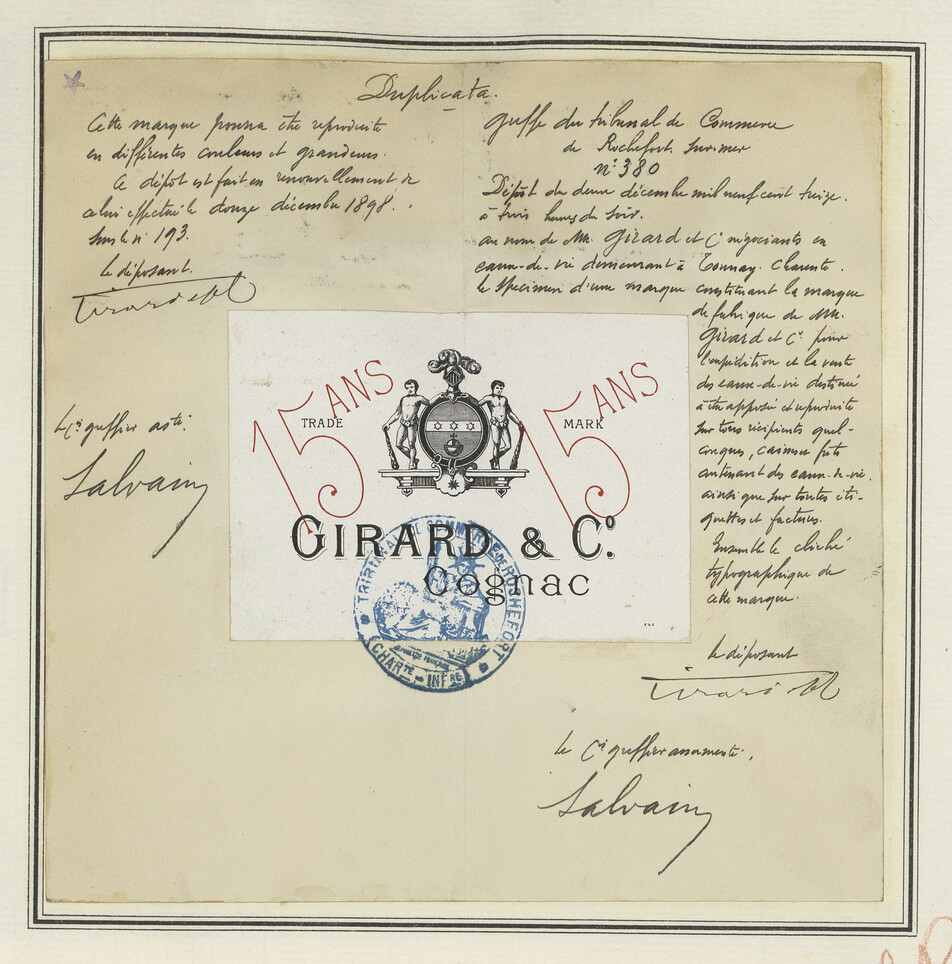 Duplicata.
Cette marque pourra être reproduite
en différentes couleurs et grandeurs.
Ce dépôt est fait en renouvellement de
celui effectué le douze décembre 1898.
sous le n° 193.
Le déposant.
Girard et Co
Le Cis greffier asté.
Salvain
Greffe du tribunal de Commerce
de Rochefort sur mer
n° 380
Dépôt du deux décembre mil neuf cent treize.
à trois heures du soir.
au nom de MM. Girard et Cie négociants en
eaux-de-vie demeurant à Tonnay-Charente.
le specimen d'une marque constituant la marque
de fabrique de MM.
Girard et Cie pour
l'expédition et la vente
des eaux-de-vie destinée
à être apposée et reproduite
sur tous récipients quel-
conques, caisses, fûts
contenant des eaux-de-vie.
ainsi que sur toutes éti-
quettes et factures.
Ensemble le cliché
typographique de
cette marque.
le déposant
Girard et Co
le Cis greffier assermenté.
Salvain
15 ANS
TRADE
MARK
15 ANS
GIRARD & Co.
Cognac
TRIBUNAL DE COMMERCE DE ROCHEFORT
CHARTE - INFRE